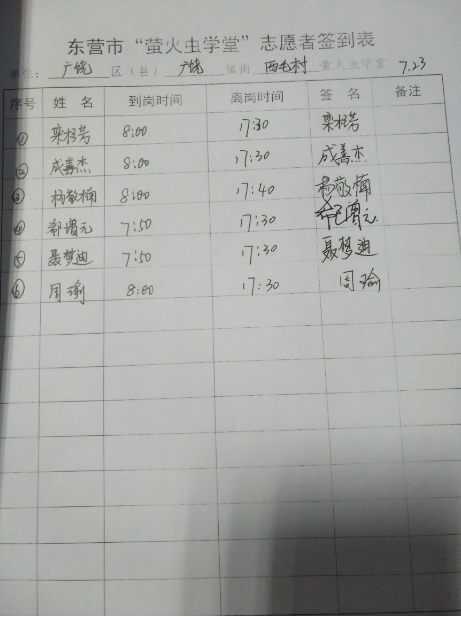 东营市“萤火虫学堂”志愿者签到表
单位：广饶 区（县） 广饶 镇街 西毛村 萤火虫学堂 7.23
序号 姓名 到岗时间 离岗时间 签名 备注
① 栾杨芳 8:00 17:30 栾杨芳
② 成善杰 8:00 17:30 成善杰
③ 杨敬楠 8:00 17:40 杨敬楠
④ 郗增元 7:50 17:30 郗增元
⑤ 聂梦迪 7:50 17:30 聂梦迪
⑥ 周瑜 8:00 17:30 周瑜